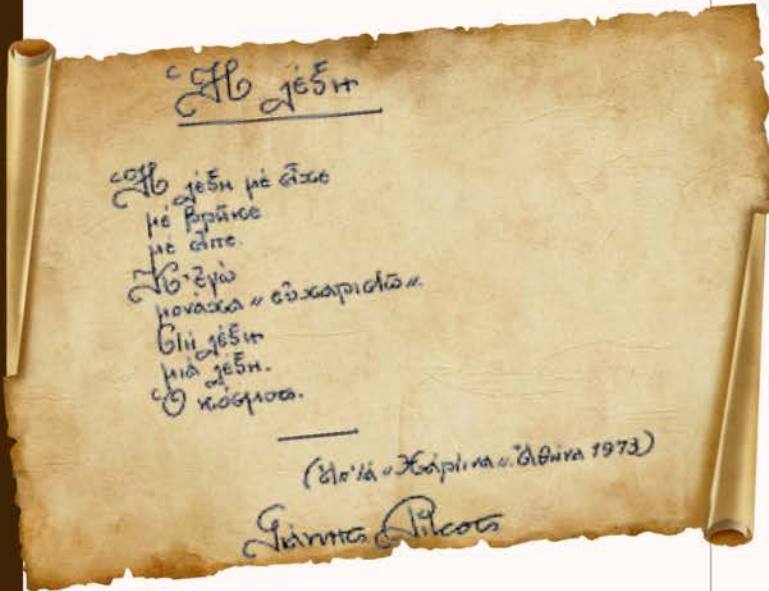 Ἡ λέξη
Ἡ λέξη μὲ εἶχε
μὲ βρῆκε
μὲ εἶπε.
Κ' ἐγὼ
μονάχα «εὐχαριστῶ».
Στὴ λέξη
μιὰ λέξη.
Ὁ κόσμος.
(Ἀπ' τὰ «Χάρτινα». Ἀθήνα 1973)
Γιάννης Ρίτσος